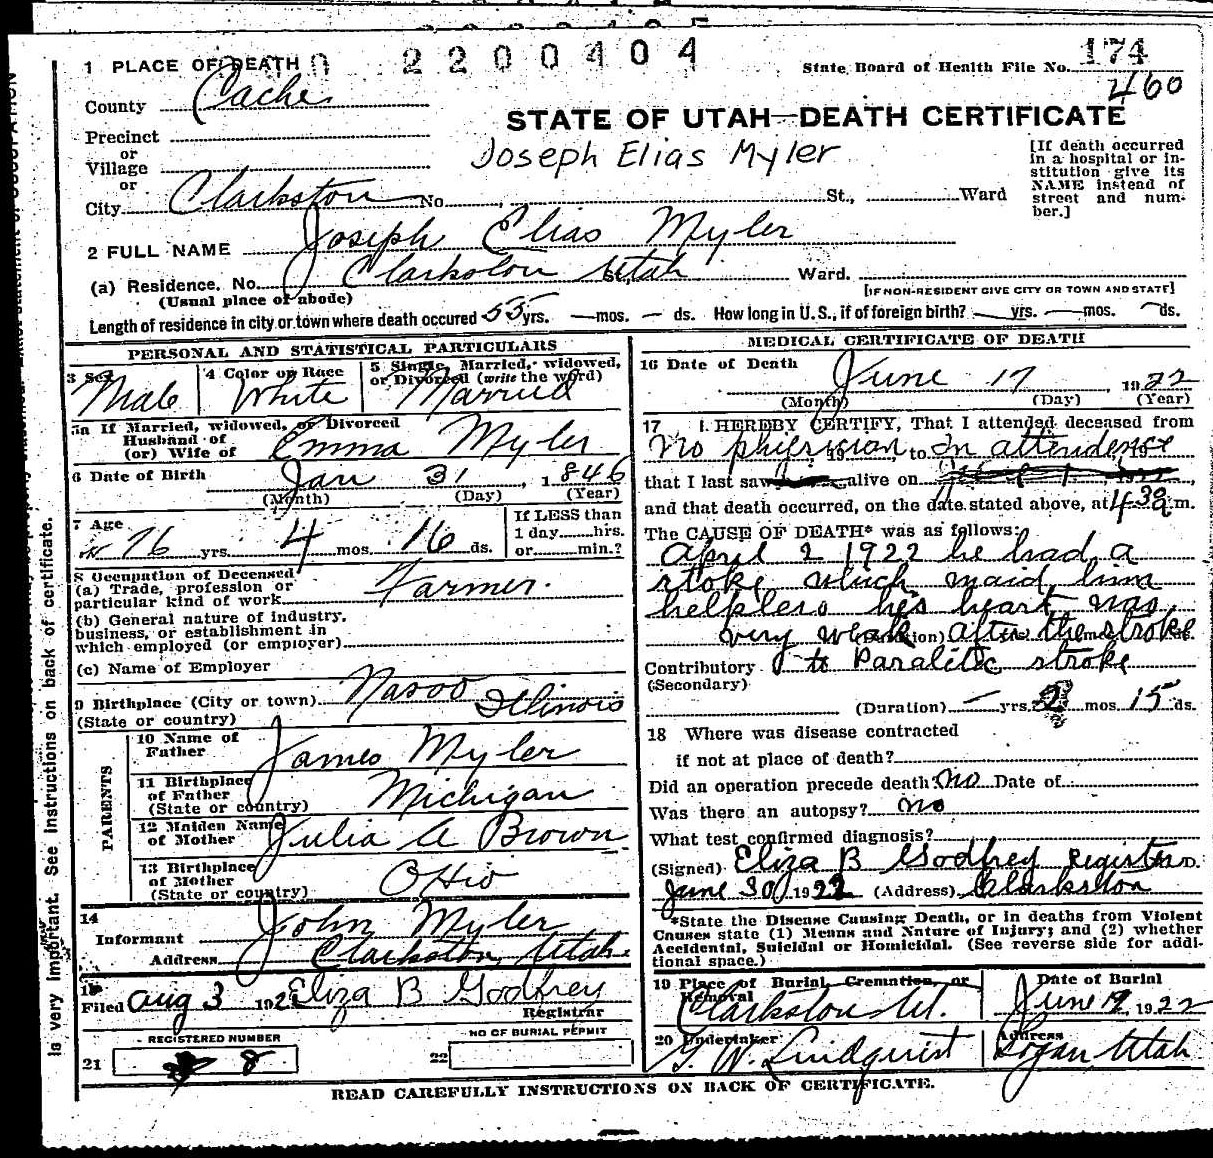 1 PLACE OF DEATH
2200404
State Board of Health File No. 174
460
County Cache
STATE OF UTAH—DEATH CERTIFICATE
Precinct
or
Village
or
Joseph Elias Myler
[If death occurred in a hospital or institution give its NAME instead of street and number.]
City Clarkston No. St., Ward
2 FULL NAME Joseph Elias Myler
(a) Residence. No. Clarkston Utah St., Ward.
(Usual place of abode)
[IF NON-RESIDENT GIVE CITY OR TOWN AND STATE]
Length of residence in city or town where death occured 55 yrs. — mos. — ds. How long in U. S., if of foreign birth? — yrs. — mos. — ds.
PERSONAL AND STATISTICAL PARTICULARS
3 Sex Male
4 Color or Race White
5 Single, Married, widowed, or Divorced (write the word) Married
5a If Married, widowed, or Divorced
Husband of
(or) Wife of Emma Myler
6 Date of Birth Jan 31, 1846
(Month) (Day) (Year)
7 Age 76 yrs. 4 mos. 16 ds.
If LESS than
1 day hrs.
or min.?
8 Occupation of Deceased
(a) Trade, profession or
particular kind of work Farmer.
(b) General nature of industry,
business, or establishment in
which employed (or employer)
(c) Name of Employer
9 Birthplace (City or town) Navoo
(State or country) Illinois
PARENTS
10 Name of Father James Myler
11 Birthplace of Father (State or country) Michigan
12 Maiden Name of Mother Julia A Brown
13 Birthplace of Mother (State or country) Ohio
14
Informant John Myler
Address Clarkston, Utah.
15
Filed Aug 3 1922 Eliza B Godfrey
Registrar
REGISTERED NUMBER
21 8
NO OF BURIAL PERMIT
22
MEDICAL CERTIFICATE OF DEATH
16 Date of Death June 17, 1922
(Month) (Day) (Year)
17 I HEREBY CERTIFY, That I attended deceased from
No physician 19 , to In attendence 19
that I last saw alive on
and that death occurred, on the date stated above, at 4 30 a m.
The CAUSE OF DEATH* was as follows:
April 2 1922 he had a
stoke which maid him
helpless he's heart was
very weak after the stroke
(Duration)
Contributory to Paralitic stroke
(Secondary)
(Duration) — yrs. 2 mos. 15 ds.
18 Where was disease contracted
if not at place of death?
Did an operation precede death? no Date of
Was there an autopsy? no
What test confirmed diagnosis?
(Signed) Eliza B Godfrey Register M.D.
June 30, 1922 (Address) Clarkston
*State the Disease Causing Death, or in deaths from Violent
Causes state (1) Means and Nature of Injury; and (2) whether
Accidental, Suicidal or Homicidal. (See reverse side for addi-
tional space.)
19 Place of Burial, Cremation, or Removal Clarkston Ut.
Date of Burial June 19, 1922
20 Undertaker G. W. Lindquist
Address Logan, Utah
READ CAREFULLY INSTRUCTIONS ON BACK OF CERTIFICATE.
is very important. See instructions on back of certificate.